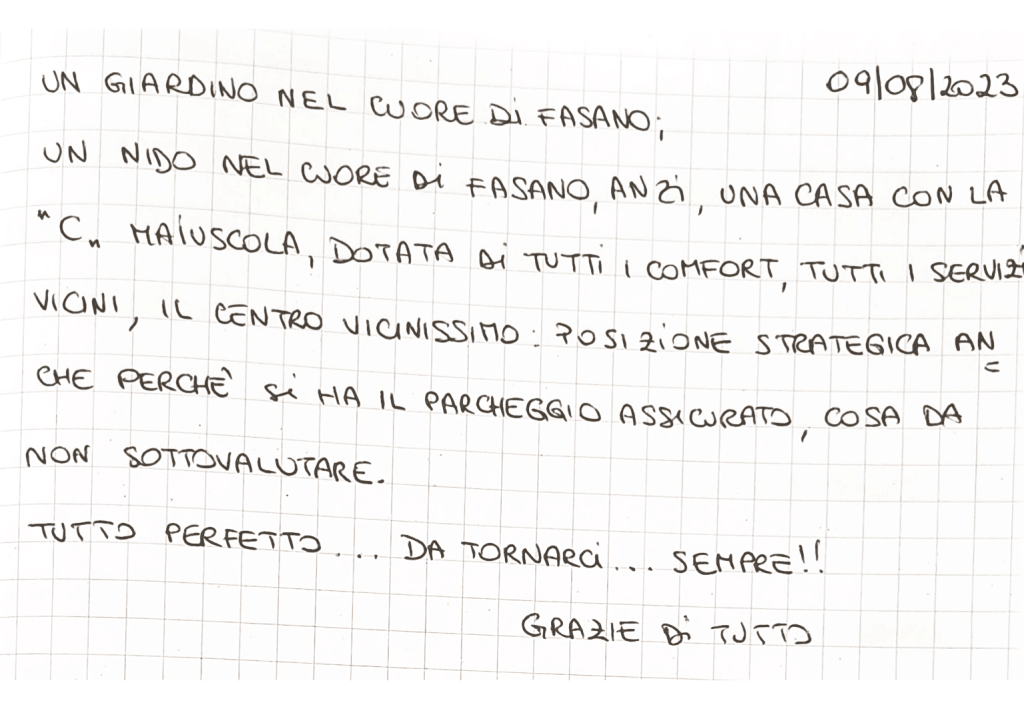 09/08/2023
UN GIARDINO NEL CUORE Di FASANO;
UN NIDO NEL CUORE Di FASANO, ANZi, UNA CASA CON LA
"C" MAIUSCOLA, DOTATA Di TUTTi I COMFORT, TUTTI I SERVIZI
VICINI, IL CENTRO VICINISSIMO: POSIZIONE STRATEGICA AN=
CHE PERCHÈ Si HA IL PARCHEGGIO ASSICURATO, COSA DA
NON SOTTOVALUTARE.
TUTTO PERFETTO... DA TORNARCi... SEMPRE!!
GRAZIE Di TUTTO